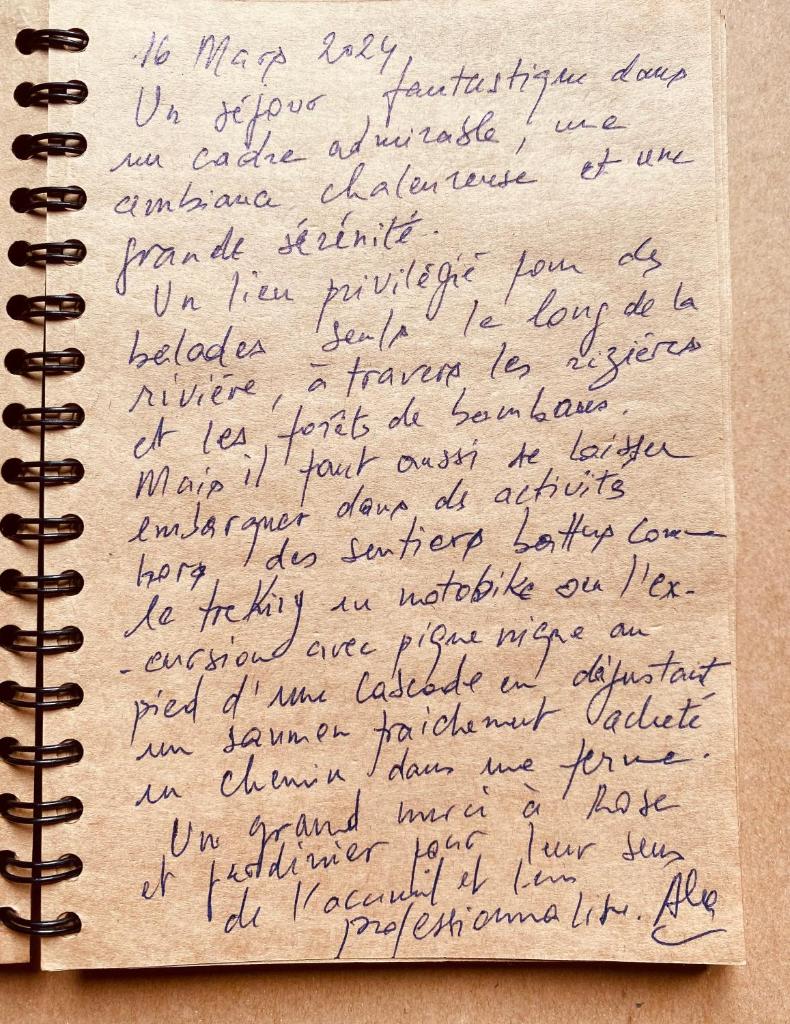 16 Mars 2024
Un séjour fantastique dans
un cadre admirable, une
ambiance chaleureuse et une
grande sérénité.
Un lieu privilégié pour des
balades seuls le long de la
rivière, à travers les rizières
et les forêts de bambous.
Mais il faut aussi se laisser
embarquer dans des activités
hors des sentiers battus comme
le treking en motobike ou l'ex-
-cursion avec pique nique au
pied d'une cascade en dégustant
un saumon fraichement acheté
en chemin dans une ferme.
Un grand merci à Rose
et pour leur sens
de l'accueil et leur
professionnalisme.